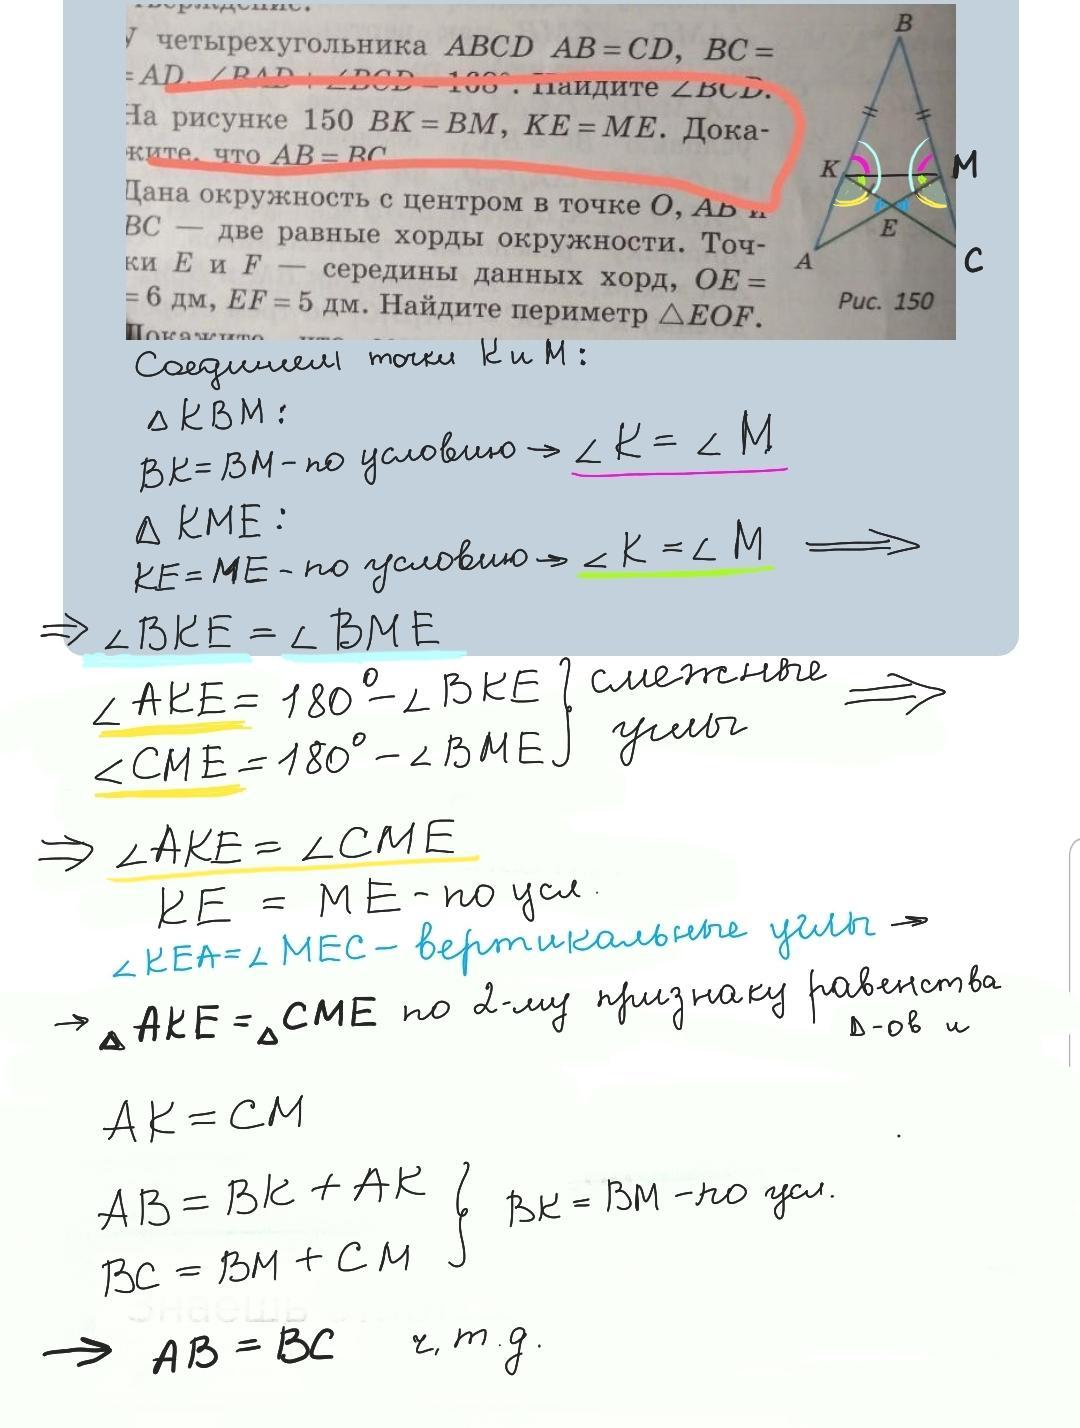 У четырехугольника ABCD AB = CD, BC =
= AD. ∠BAD + ∠BCD = 168°. Найдите ∠BCD.
На рисунке 150 BK = BM, KE = ME. Дока-
жите, что AB = BC
Дана окружность с центром в точке O, AB и
BC — две равные хорды окружности. Точ-
ки E и F — середины данных хорд, OE =
= 6 дм, EF = 5 дм. Найдите периметр △EOF.
B
K
M
E
A
C
Рис. 150
Соединим точки K и M:
△ KBM:
BK = BM - по условию → ∠K = ∠M
△ KME:
KE = ME - по условию → ∠K = ∠M ⟹
⇒ ∠BKE = ∠BME
∠AKE = 180° - ∠BKE } смежные
∠CME = 180° - ∠BME } углы ⟹
⇒ ∠AKE = ∠CME
KE = ME - по усл.
∠KEA = ∠MEC - вертикальные углы →
→ △AKE = △CME по 2-му признаку равенства
△-ов и
AK = CM
AB = BK + AK } BK = BM - по усл.
BC = BM + CM
→ AB = BC ч.т.д.